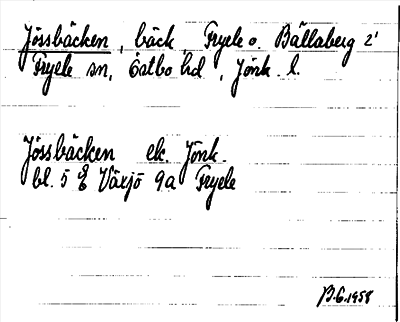 Jössbäcken, bäck, Fryele o. Bällaberg i
Fryele sn, Östbo hd, Jönk. l.
Jössbäcken ek. Jönk.
bl. 5 E Växjö 9a Fryele
B.G. 1958